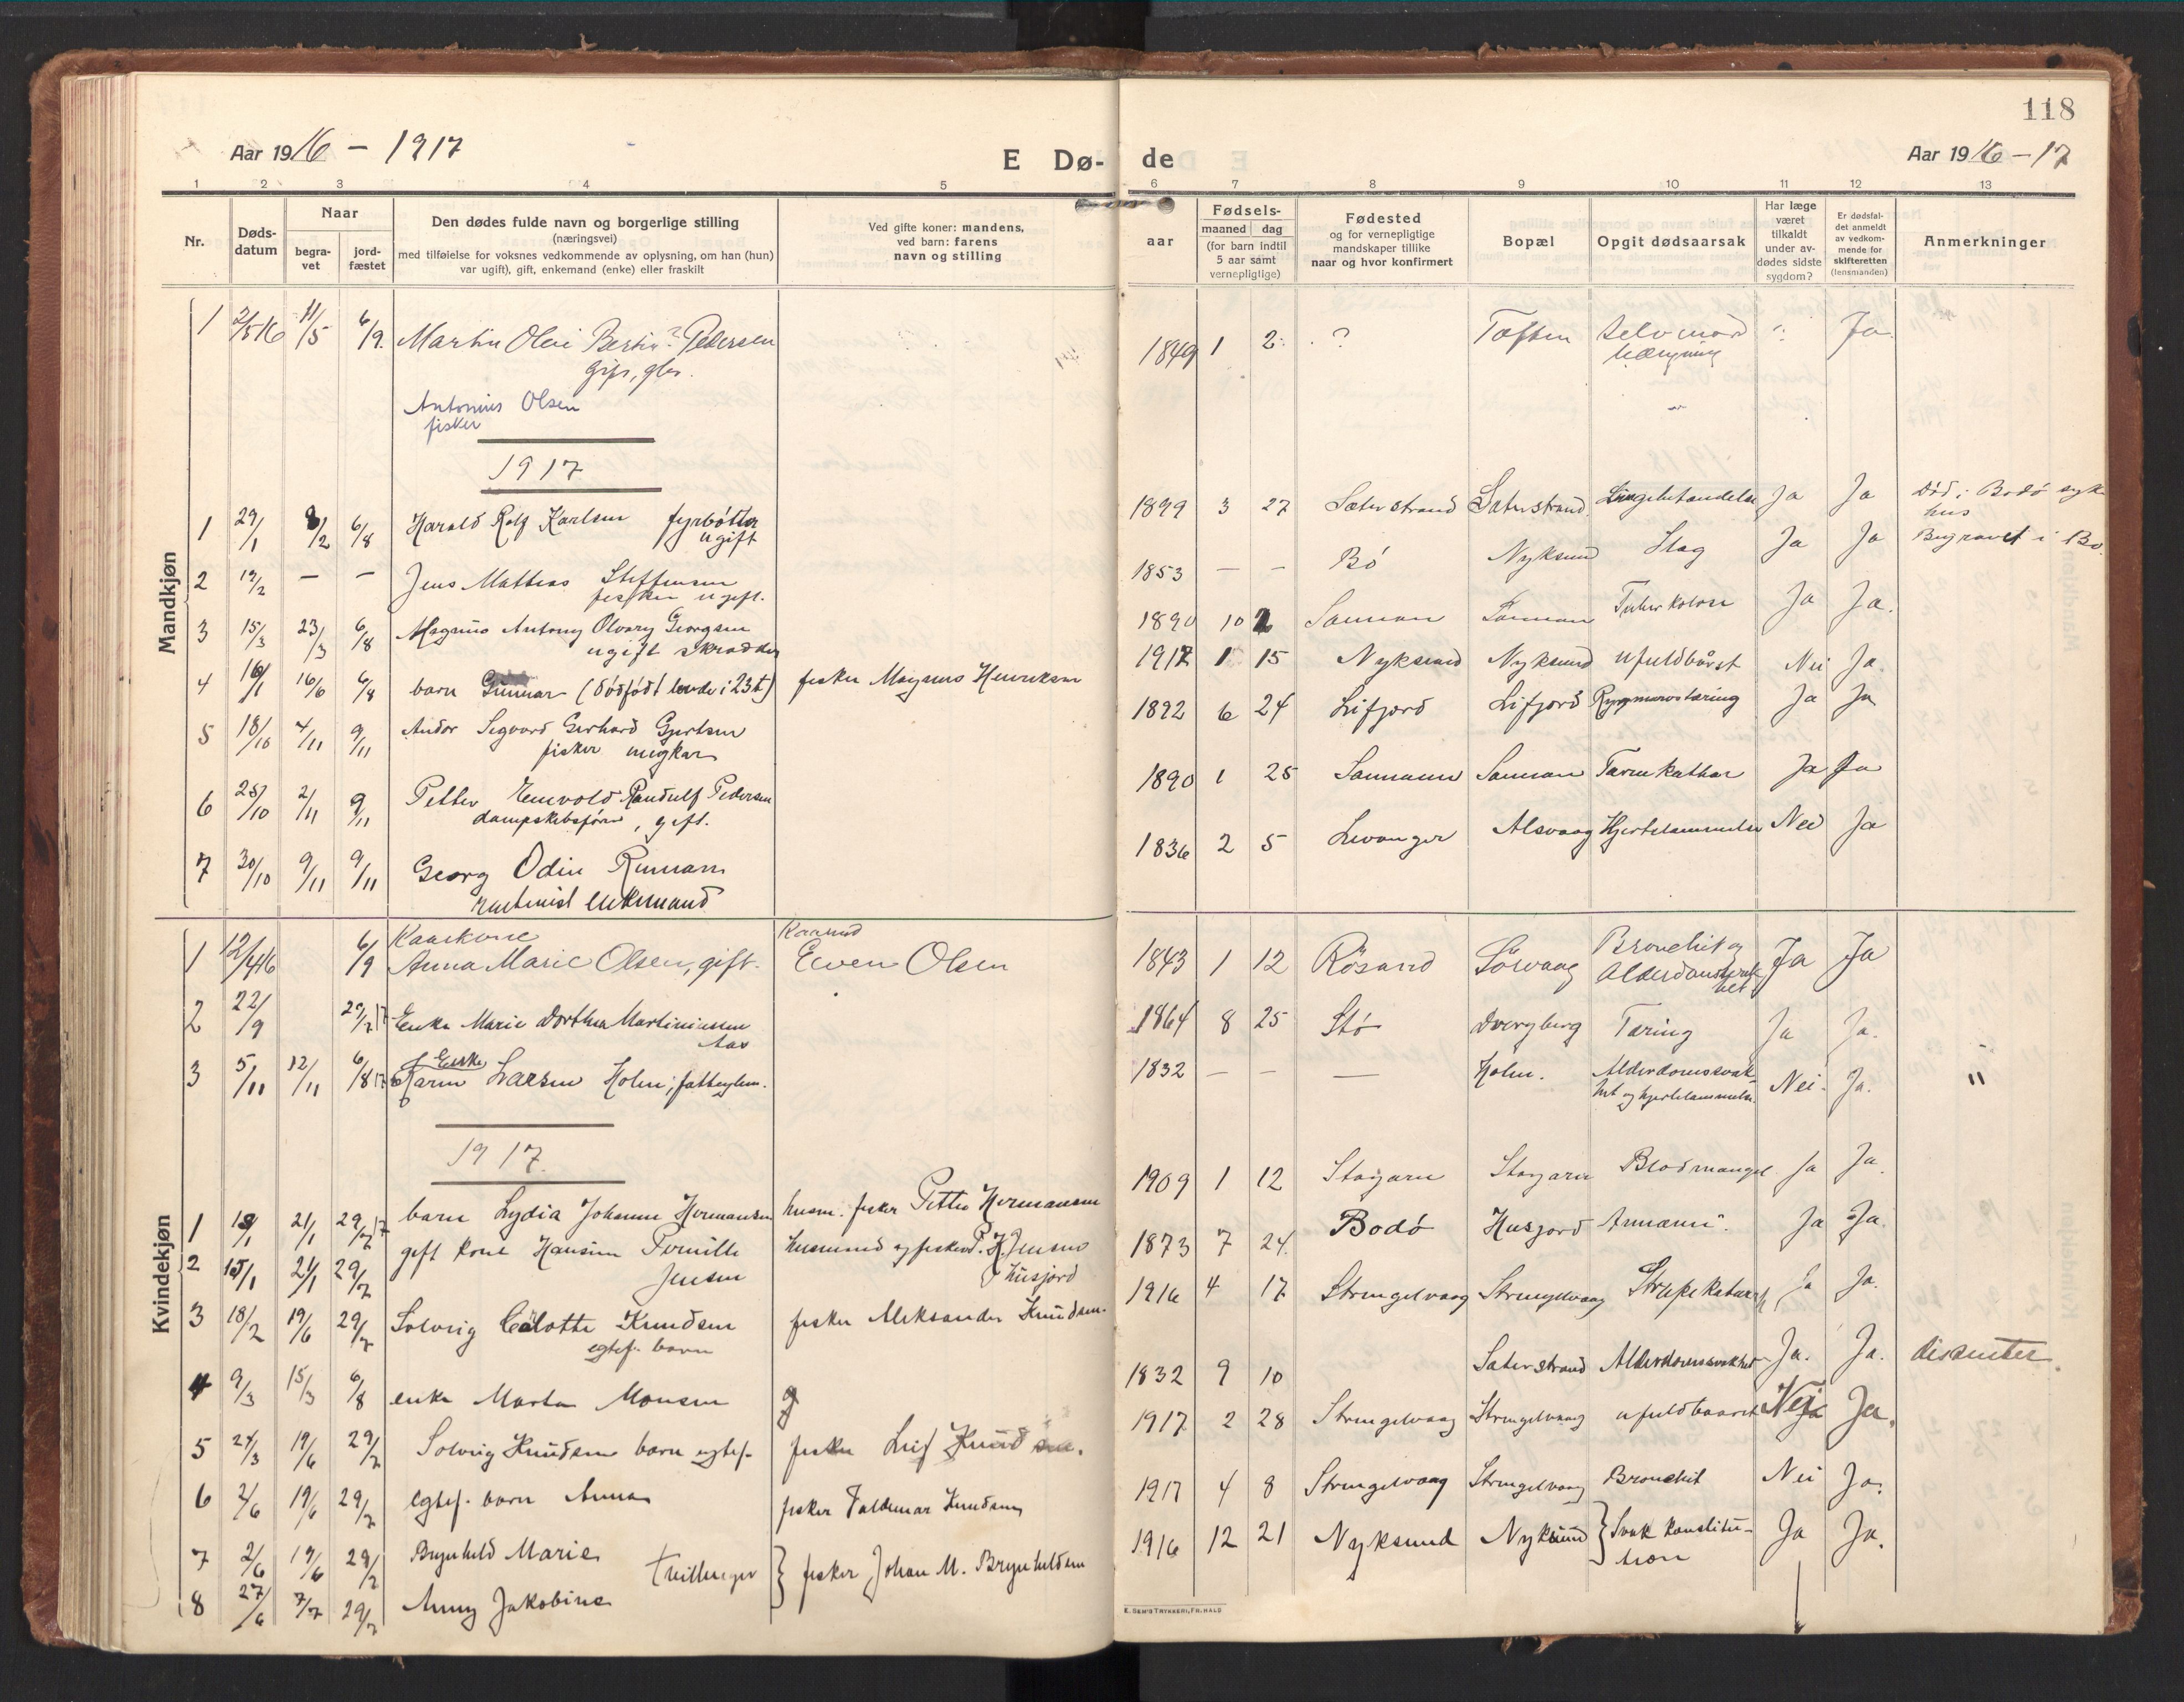 118
Aar 1916 - 1917
E Dø-
de
Aar 1916 - 17
1 2 3 4 5
6 7 8 9 10 11 12 13
Nr.
Døds-
datum
Naar
begra-
vet
jord-
fæstet
Den dødes fulde navn og borgerlige stilling
(næringsvei)
med tilføielse for voksnes vedkommende av oplysning, om han (hun)
var ugift), gift, enkemand (enke) eller fraskilt
Ved gifte koner: mandens,
ved barn: farens
navn og stilling
aar
Fødsels-
maaned dag
(for barn indtil
5 aar samt
vernepligtige)
Fødested
og for vernepligtige
mandskaper tillike
naar og hvor konfirmert
Bopæl
Opgit dødsaarsak
Har læge
været
tilkaldt
under av-
dødes sidste
sygdom?
Er dødsfal-
det anmeldt
av vedkom-
mende for
skifteretten
(lensmanden)
Anmerkninger
Mandkjøn
1 2/5 16 11/5 6/9. Martin Olai Pedersen 1849 1 2 ? Toften Selvmord ? Ja
Antonius Olsen
fisker
1917
1 29/1 8/2 6/8 Harald Rolf Karlsen fyrbøtter 1899 3 27 Sæterstrand Sæterstrand Ja Ja Død i Bodø syke
ugift hus
2 19/2 — — Jens Mathias Steffensen 1853 — — Bø Nyksund Slag Ja Ja Begravet i Bø.
fisker ugift.
3 15/3 23/3 6/8 Magnus Antony Olvary Georgsen 1890 10 2 Sannan Sannan Tuberkolose Ja Ja.
ugift skrædder
4 16/1 16/6 6/8 barn Gunnar (dødfødt levde i 23 t) fisker Magnus Henriksen 1917 1 15 Nyksund Nyksund ufuldbåret Nei Ja.
5 18/10 4/11 9/11 Andor Sigvard Gerhard Gjertsen 1892 6 24 Lifjord Lifjord Rygmarvstæring Ja Ja
fisker ungkar
6 25/10 2/11 9/11 Petter Enevold Randulf Pedersen 1890 1 25 Sannann Sannan Tarmkathar Ja Ja
dampskibsfører, gift.
7 30/10 9/11 9/11 Georg Odin Rumann 1836 2 5 Levanger Alsvaag Hjertelammelse Nei Ja
enkemand
Kvindekjøn
1 12/4 16 6/9 Kaarkone Kaarmd
Anna Marie Olsen, gift. Even Olsen 1843 1 12 Røsand Sørvaag Bronchit og Ja Ja
Alderdomssvak
het
2 22/9 29/7 17 Enke Marie Dorthea Martinussen 1864 8 25 Stø Dverberg Tæring Ja Ja.
Aas
3 5/11 12/11 6/8 17 Enke
Karen Larsen Holm; fattiglem. 1832 — — — Holm. Alderdomssvak- Nei. Ja. "
het og hjertelammelse.
1917.
1 21/1 29/7 17 barn Lydia Johanne Hermansen husm. fisker Petter Hermansen 1909 1 12 Stavarn Stavarn Blodmangel Ja Ja.
2 15/1 21/1 29/7 gift kone Hansine Pernille husmand og fisker P. H. Jensen 1873 7 24. Bodø Husjord Annæmi. Ja Ja.
Jensen Husjord
3 18/2 19/6 29/7 Solveig Knudsen fisker Aleksander Knudsen. 1916 4 17 Strengelvaag Strengelvaag Ja Ja.
egtef. barn
4 9/3 15/3 6/8 enke Marta Monsen 1832 9 10 Sæterstrand Alderdomssvakhet Ja. Ja. dissenter.
5 24/3 19/6 29/7 Solveig Knudsen barn egtef. fisker Leif Knudsen. 1917 2 28 Strengelvaag Strengelvaag ufuldbaaret Nei Ja.
6 2/6 19/6 29/7 egtef. barn Anna fisker Valdemar Knudsen 1917 4 8 Strengelvaag Strengelvaag Bronchit Nei Ja.
7 2/6 19/6 29/7 Brynhild Marie tvillinger } fisker Johan M. Brynhildsen 1916 12 21 Nyksund Nyksund } Svak konstitu- Ja Ja.
tion
8 27/6 7/7 29/7 Anny Jakobine
E. SEM'S TRYKKERI, FR.HALD